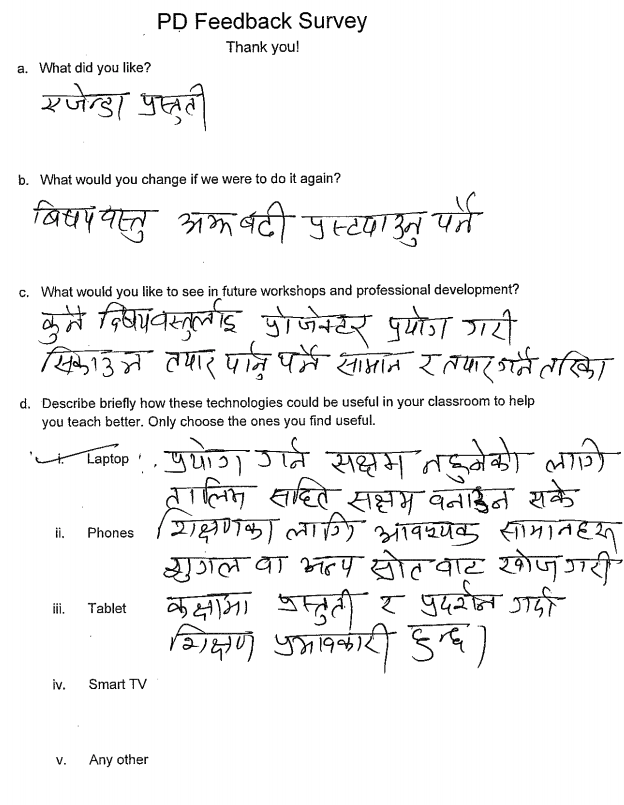 PD Feedback Survey
Thank you!
a. What did you like?
एजेन्डा प्रस्तुती
b. What would you change if we were to do it again?
बिषयवस्तु अझ बढी प्रस्टयाउनु पर्ने
c. What would you like to see in future workshops and professional development?
कुनै बिषयवस्तुलाई प्रोजेक्टर प्रयोग गरी
सिकाउन तयार पार्नु पर्ने सामान र तयार गर्ने तरिका
d. Describe briefly how these technologies could be useful in your classroom to help
you teach better. Only choose the ones you find useful.
i. Laptop प्रयोग गर्न सक्षम नहुनेको लागि
तालिम सहित सक्षम बनाउन सके
ii. Phones शिक्षणका लागि आवश्यक सामानहरू
गुगल वा अन्य स्रोत वाट खोज गरी
iii. Tablet कक्षामा प्रस्तुती र प्रदर्शन गर्दा
शिक्षण प्रभावकारी हुन्छ।
iv. Smart TV
v. Any other